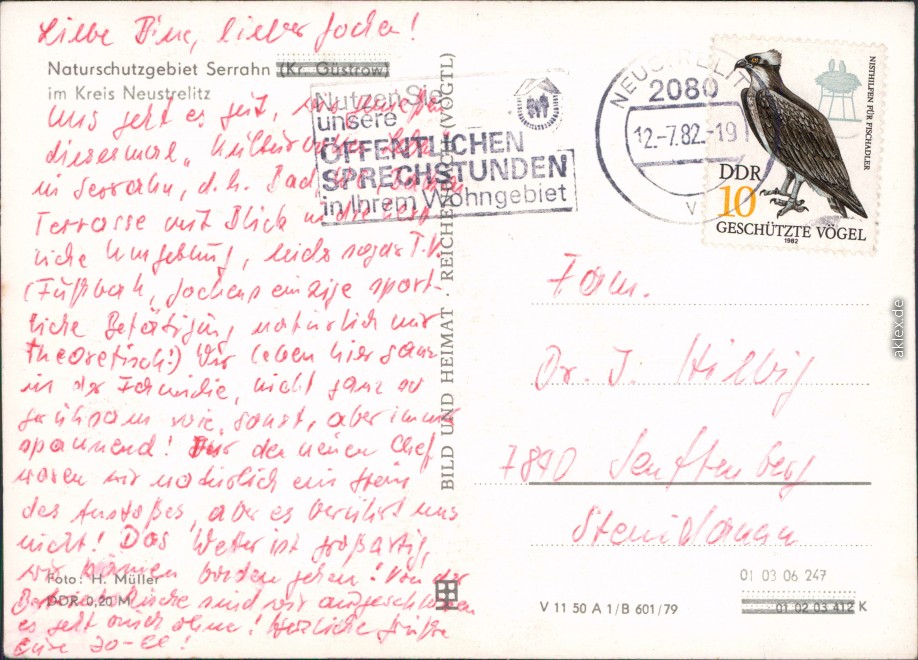 Liebe Bine, lieber Jochen!
Naturschutzgebiet Serrahn (Kr. Güstrow)
im Kreis Neustrelitz
Uns geht es gut, wir
diesesmal
in Serrahn, d.h. Bad
Terrasse mit Blick in die
liche Umgebung, leider sogar T.V.
(Fußball, Jochens einzige sport-
liche Betätigung, natürlich nur
theoretisch!) Wir leben hier ganz
in der Familie, nicht ganz so
wie sonst, aber immer
spannend! Für den neuen Chef
waren wir natürlich ein Stein
des Anstoßes, aber es berührt uns
nicht! Das Wetter ist großartig,
wir können baden gehen! Von der
sind wir ausgeschlossen
es geht auch ohne! Herzliche Grüße
Eure
Foto: H. Müller
DDR 0,20 M
BILD UND HEIMAT · REICHENBACH (VOGTL)
Nutzen Sie
unsere
ÖFFENTLICHEN
SPRECHSTUNDEN
in Ihrem Wohngebiet
NEUSTRELITZ
2080
12.-7.82.-19
v
NISTHILFEN FÜR FISCHADLER
DDR
10
GESCHÜTZTE VÖGEL
1982
Fam.
Dr. J. Hilbig
7840 Senftenberg
01 03 06 247
V 11 50 A 1/B 601/79
01 02 03 412 K
aklex.de